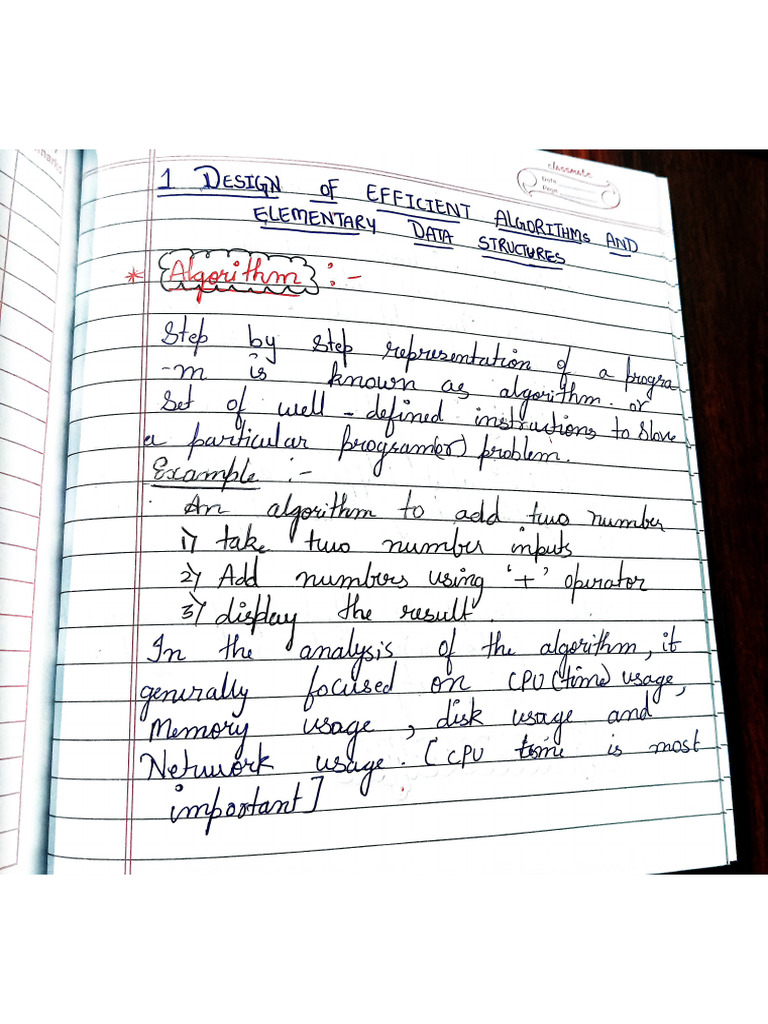 classmate
Date
Page
1 DESIGN OF EFFICIENT ALGORITHMS AND
ELEMENTARY DATA STRUCTURES
* Algorithm :-
Step by step representation of a progra
-m is known as algorithm. or
Set of well-defined instructions to slove
a particular program(or) problem.
Example :-
An algorithm to add two number
1) take two number inputs
2) Add numbers using '+' operator
3) display the result.
In the analysis of the algorithm, it
generally focused on CPU(time) usage,
Memory usage, disk usage and
Network usage. [CPU time is most
important]